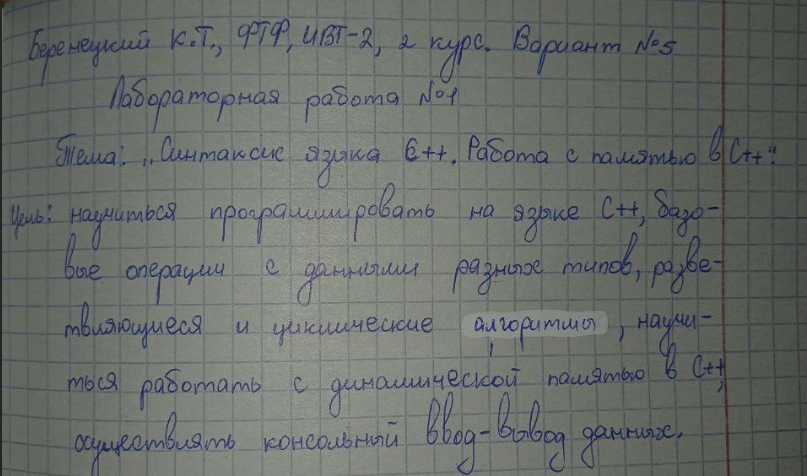 Беренецкий К.Т., ФТФ, ИВТ-2, 2 курс. Вариант №5
Лабораторная работа №1
Тема: „Синтаксис языка C++. Работа с памятью в C++“.
Цель: научиться программировать на языке C++, базо-
вые операции с данными разных типов, разве-
твляющиеся и циклические алгоритмы, научи-
ться работать с динамической памятью в C++,
осуществлять консольный ввод-вывод данных.